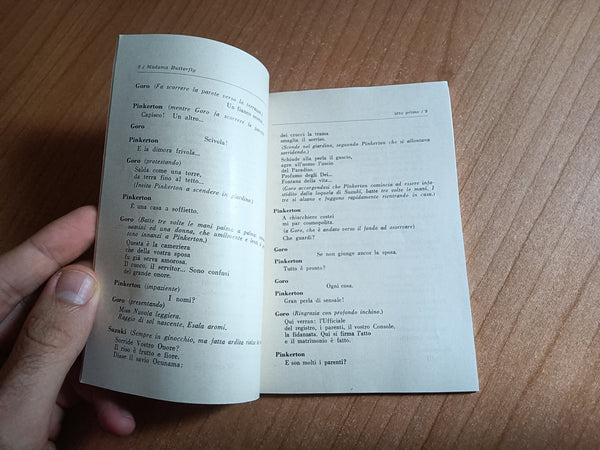 8 / Madama Butterfly
Goro (Fa scorrere la parete verso la terrazza.)
Un fianco
Pinkerton (mentre Goro fa scorrere la
Capisco! Un altro...
Goro
Scivola!
Pinkerton
E la dimora frivola...
Goro (protestando)
Salda come una torre,
da terra fino al tetto.
(Invita Pinkerton a scendere in giardino.)
Pinkerton
È una casa a soffietto.
Goro (Batte tre volte le mani palma a palma;
uomini ed una donna, che umilmente e
innanzi a Pinkerton.)
Questa è la cameriera
che della vostra sposa
fu già serva amorosa.
Il cuoco, il servitor... Sono confusi
del grande onore.
Pinkerton (impaziente)
I nomi?
Goro (presentando)
Miss Nuvola leggiera.
Raggio di sol nascente. Esala aromi.
Suzuki (Sempre in ginocchio, ma fatta ardita
Sorride Vostro Onore?
Il riso è frutto e fiore.
Disse il savio Ocunama:
atto primo / 9
dei crucci la trama
smaglia il sorriso.
(Scende nel giardino, seguendo Pinkerton che si allontana
sorridendo.)
Schiude alla perla il guscio,
apre all'uomo l'uscio
del Paradiso.
Profumo degli Dei...
Fontana della vita...
(Goro accorgendosi che Pinkerton comincia ad essere infa-
stidito dalla loquela di Suzuki, batte tre volte le mani. I
tre si alzano e fuggono rapidamente rientrando in casa.)
Pinkerton
A chiacchiere costei
mi par cosmopolita.
(a Goro, che è andato verso il fondo ad osservare)
Che guardi?
Goro
Se non giunge ancor la sposa.
Pinkerton
Tutto è pronto?
Goro
Ogni cosa.
Pinkerton
Gran perla di sensale!
Goro (Ringrazia con profondo inchino.)
Qui verran: l'Ufficiale
del registro, i parenti, il vostro Console,
la fidanzata. Qui si firma l'atto
e il matrimonio è fatto.
Pinkerton
E son molti i parenti?